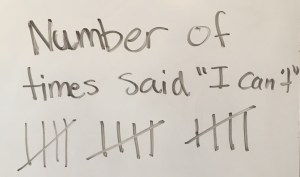 Number of
times said "I can't"